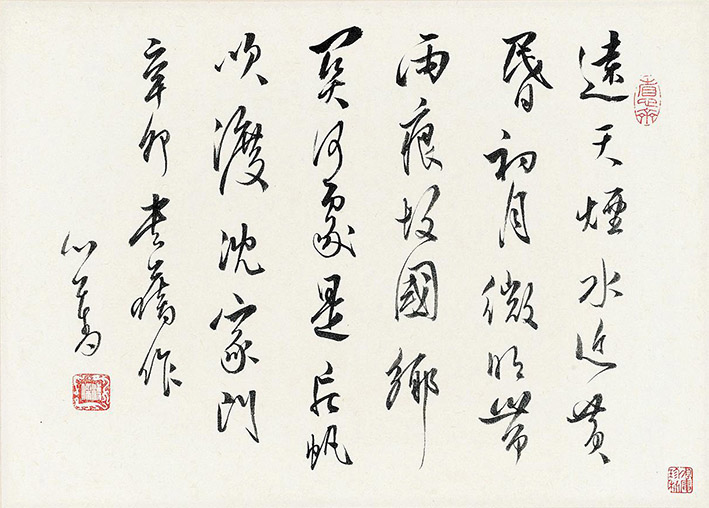 遠天煙水近黃
昏初月微明帶
雨痕故國鄉
關何處是片帆
吹渡沈家門
辛卯書舊作
心畬